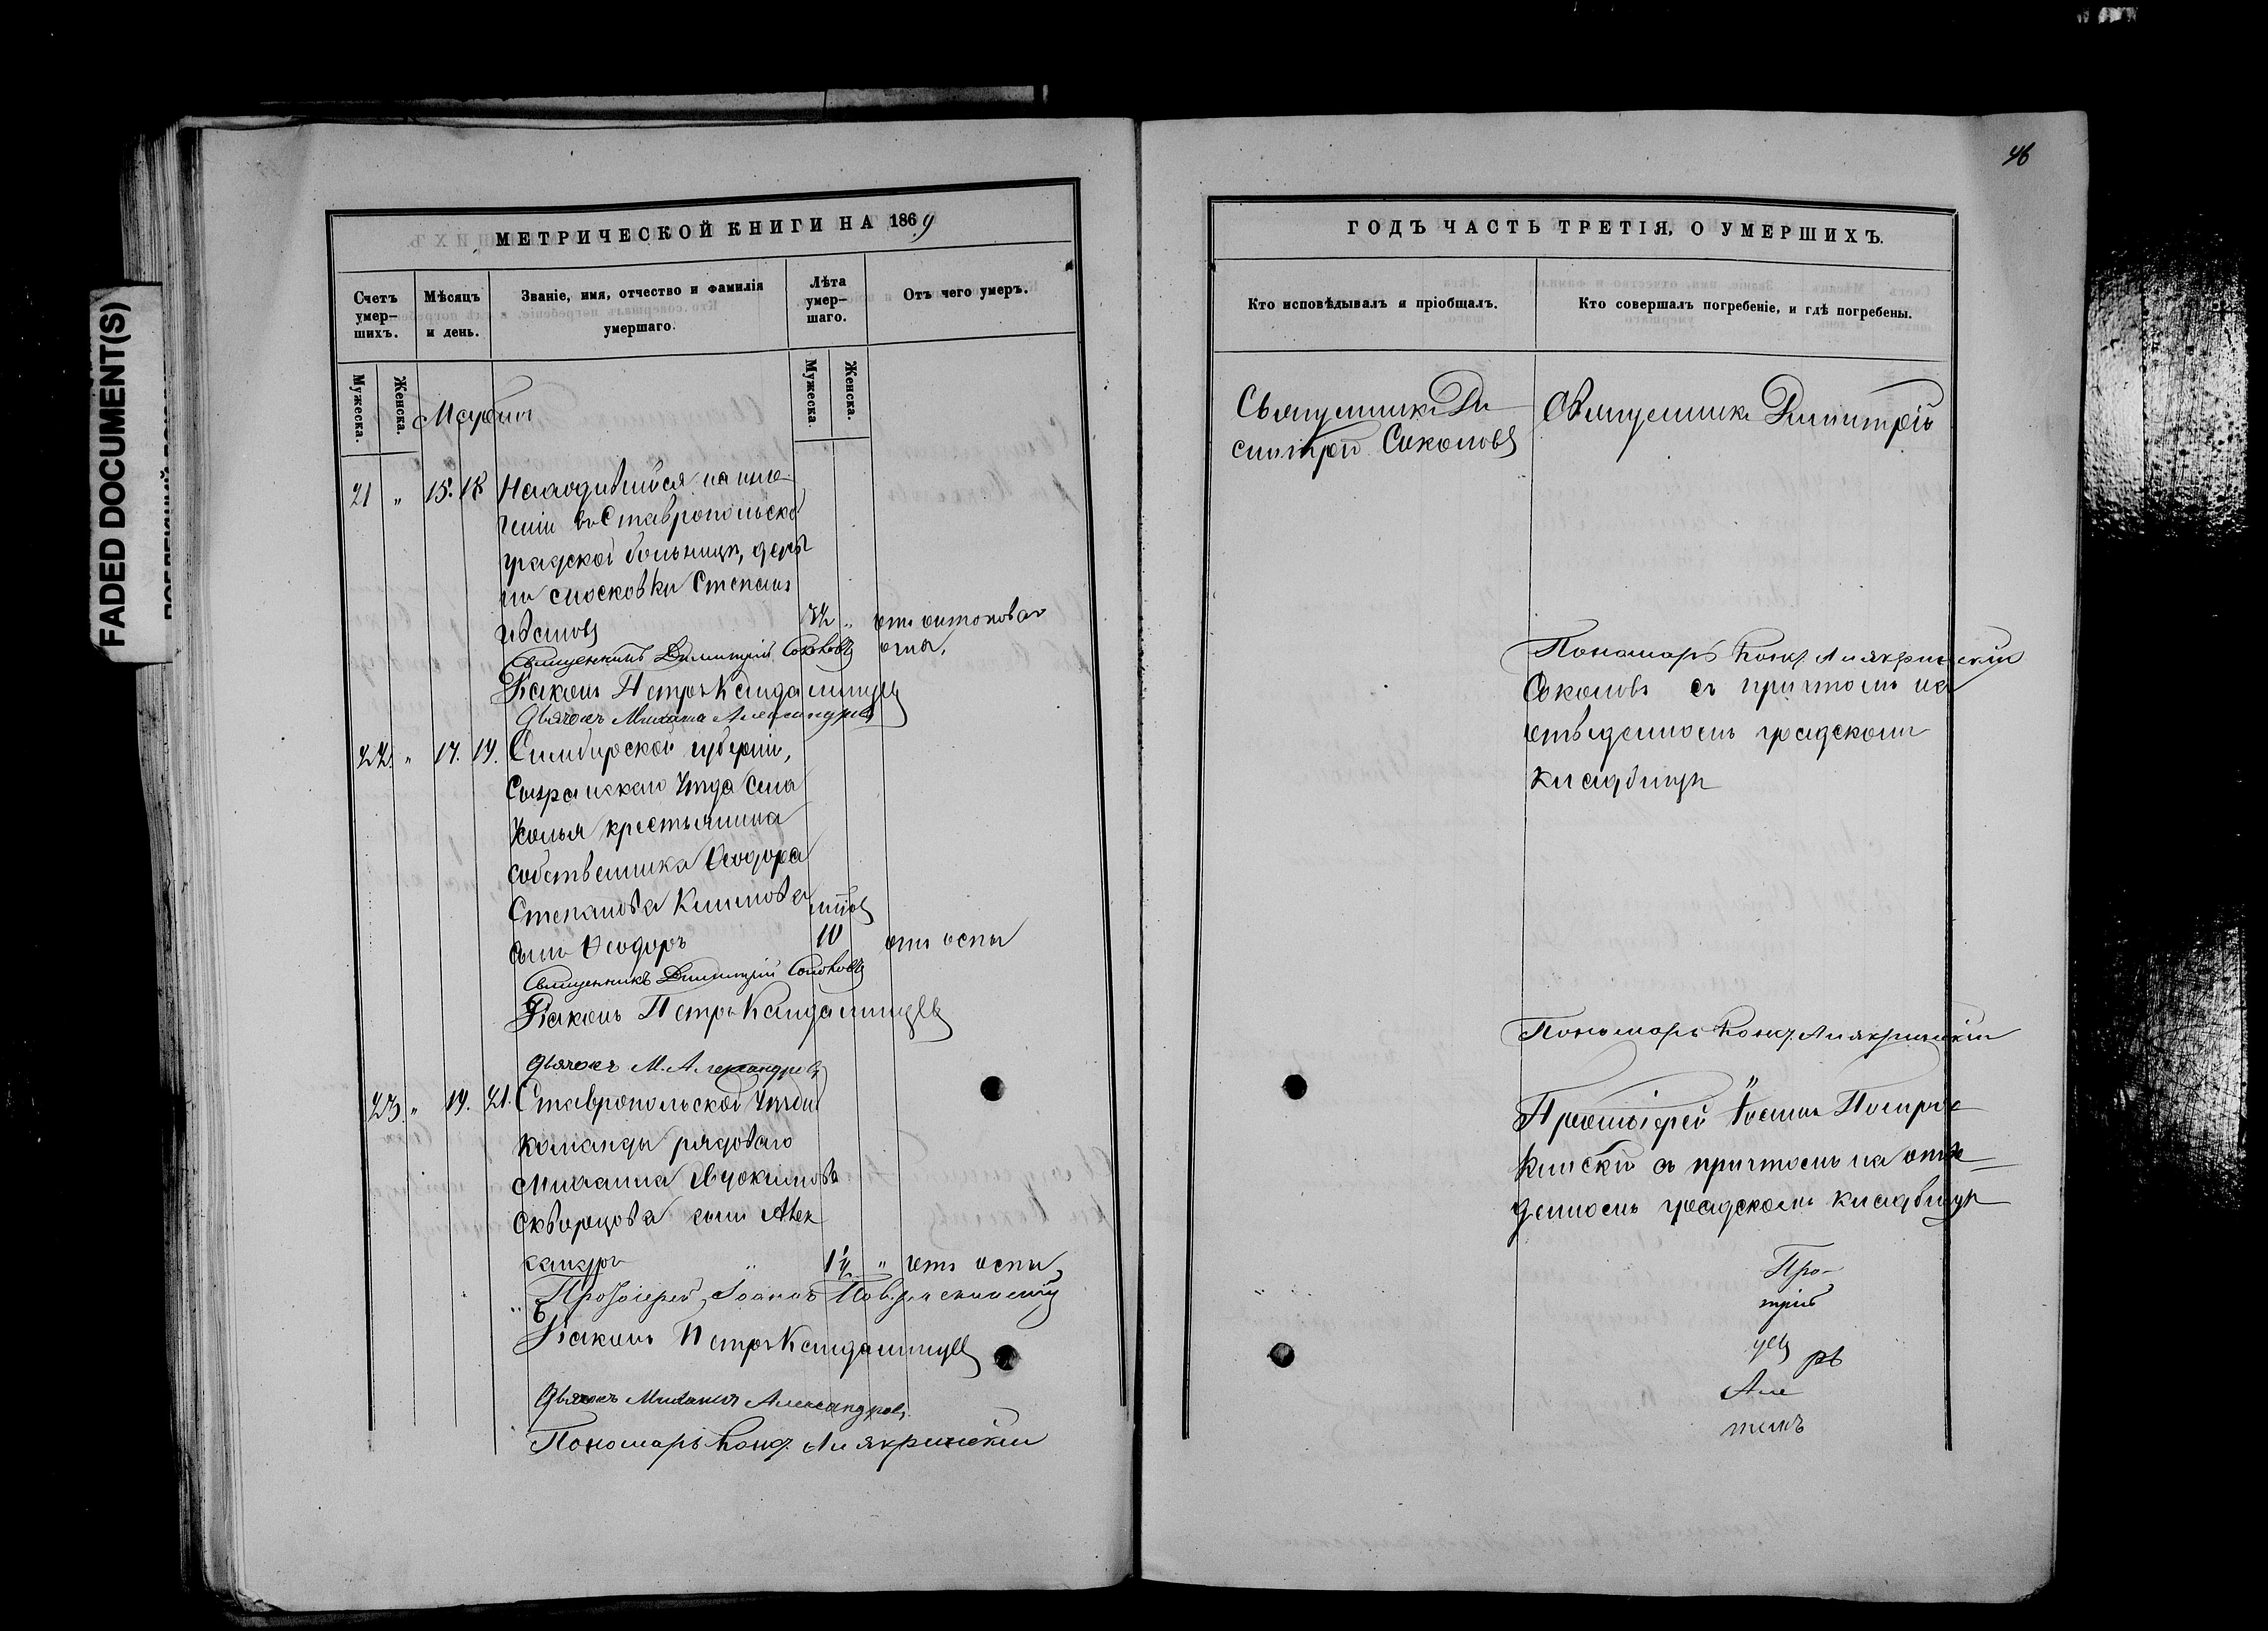 FADED DOCUMENT(S)
46
МЕТРИЧЕСКОЙ КНИГИ НА 1869
Счетъ умер-шихъ.
Мѣсяцъ и день.
Званіе, имя, отчество и фамилія умершаго.
Лѣта умер-шаго.
Отъ чего умеръ.
Мужеска.
Женска.
Мужеска.
Женска.
Марта
21 " 15. 18 Находившійся на излѣ-
ченіи въ Ставропольской
градской больницѣ, дерев
ни Московки Степанъ
Ивановъ
72 " отъ антонова
огня.
Священникъ Димитрій Соколовъ
Діаконъ Петръ Кандалинцевъ
Дьячокъ Михаилъ Александровъ
22. " 17. 19. Симбирской губерніи,
Сызранскаго Уѣзда села
Усолья крестьянина
собственника Ѳеодора
Степанова Климова
сынъ Ѳеодоръ
10 отъ оспы
Священникъ Димитрій Соколовъ
Діаконъ Петръ Кандалинцевъ
Дьячокъ М. Александровъ
23. " 19. 21. Ставропольской Уѣздн
команды рядоваго
Михаила Евдокимова
Скворцова сынъ Алек
сандръ
1½ " отъ оспы
Протоіерей Іоаннъ
Діаконъ Петръ Кандалинцевъ
Дьячокъ Михаилъ Александровъ
Пономарь Конд. Аниякринскій
ГОДЪ ЧАСТЬ ТРЕТІЯ, О УМЕРШИХЪ.
Кто исповѣдывалъ и пріобщалъ.
Кто совершалъ погребеніе, и гдѣ погребены.
Священникъ Ди
митрій Соколовъ
Священникъ Димитрій
Пономарь Конд.
Соколовъ съ причтомъ на
отведенномъ градскомъ
кладбищѣ
Пономарь Конд.
Протоіерей Іоаннъ
съ причтомъ на отве
денномъ градскомъ кладбищѣ
Про-
трій
цевъ
ровъ
Але